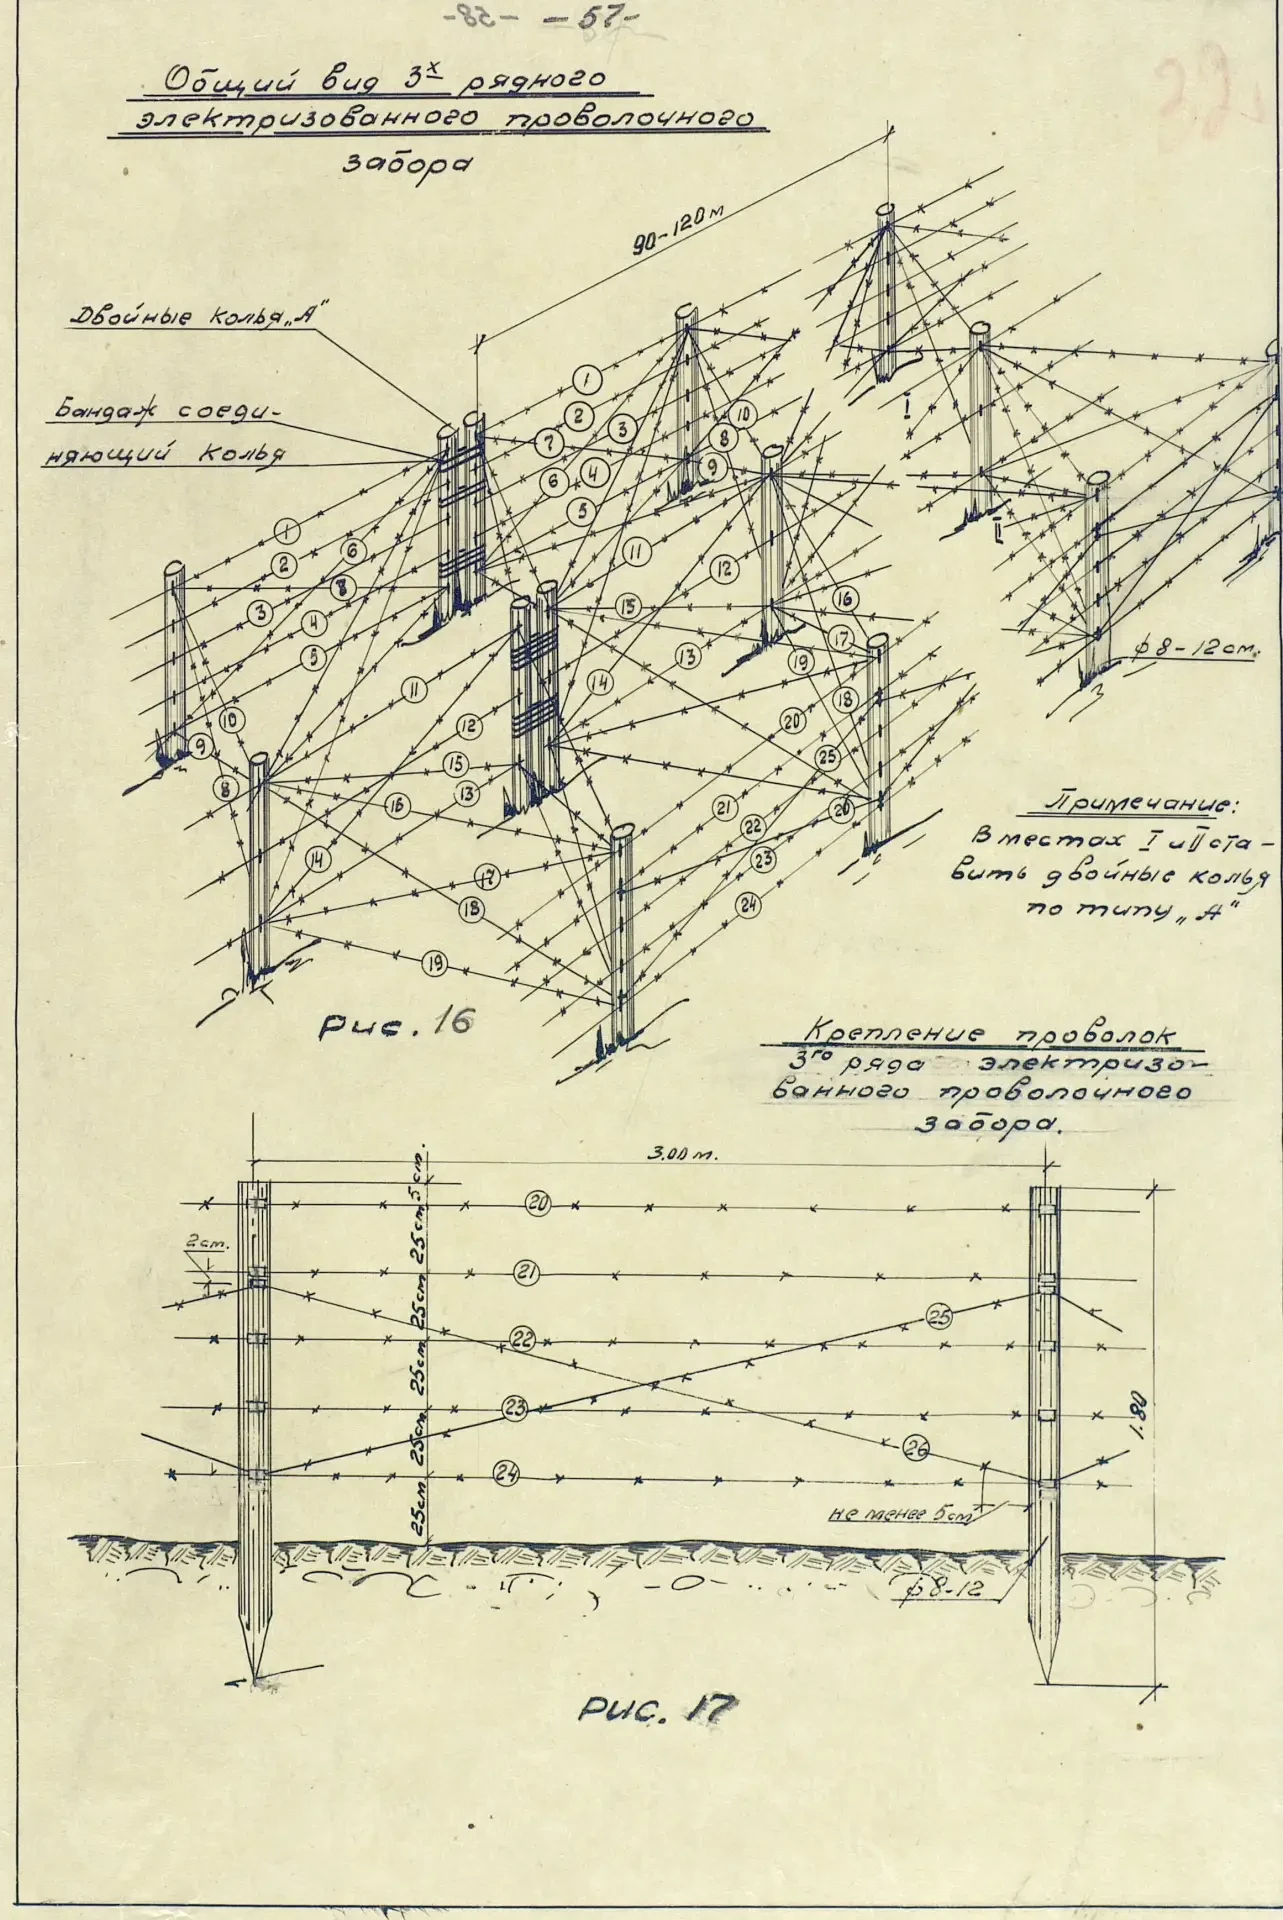 - 57 -
Общий вид 3х рядного
электризованного проволочного
забора
90-120 м
Двойные колья „А"
Бандаж соеди-
няющий колья
1
2
3
4
5
6
7
8
9
10
1
2
3
4
5
6
8
9
10
8
11
12
13
14
15
16
17
18
19
11
12
13
14
15
16
17
18
19
20
25
26
21
22
23
24
I
II
ф 8-12 см.
Примечание:
В местах I и II ста-
вить двойные колья
по типу „А"
Рис. 16
Крепление проволок
3го ряда электризо-
ванного проволочного
забора.
3.00 м.
5 см.
25 см
25 см
25 см
25 см
25 см
2 см.
20
21
22
23
24
25
26
1.80
не менее 5 см
ф 8-12
Рис. 17